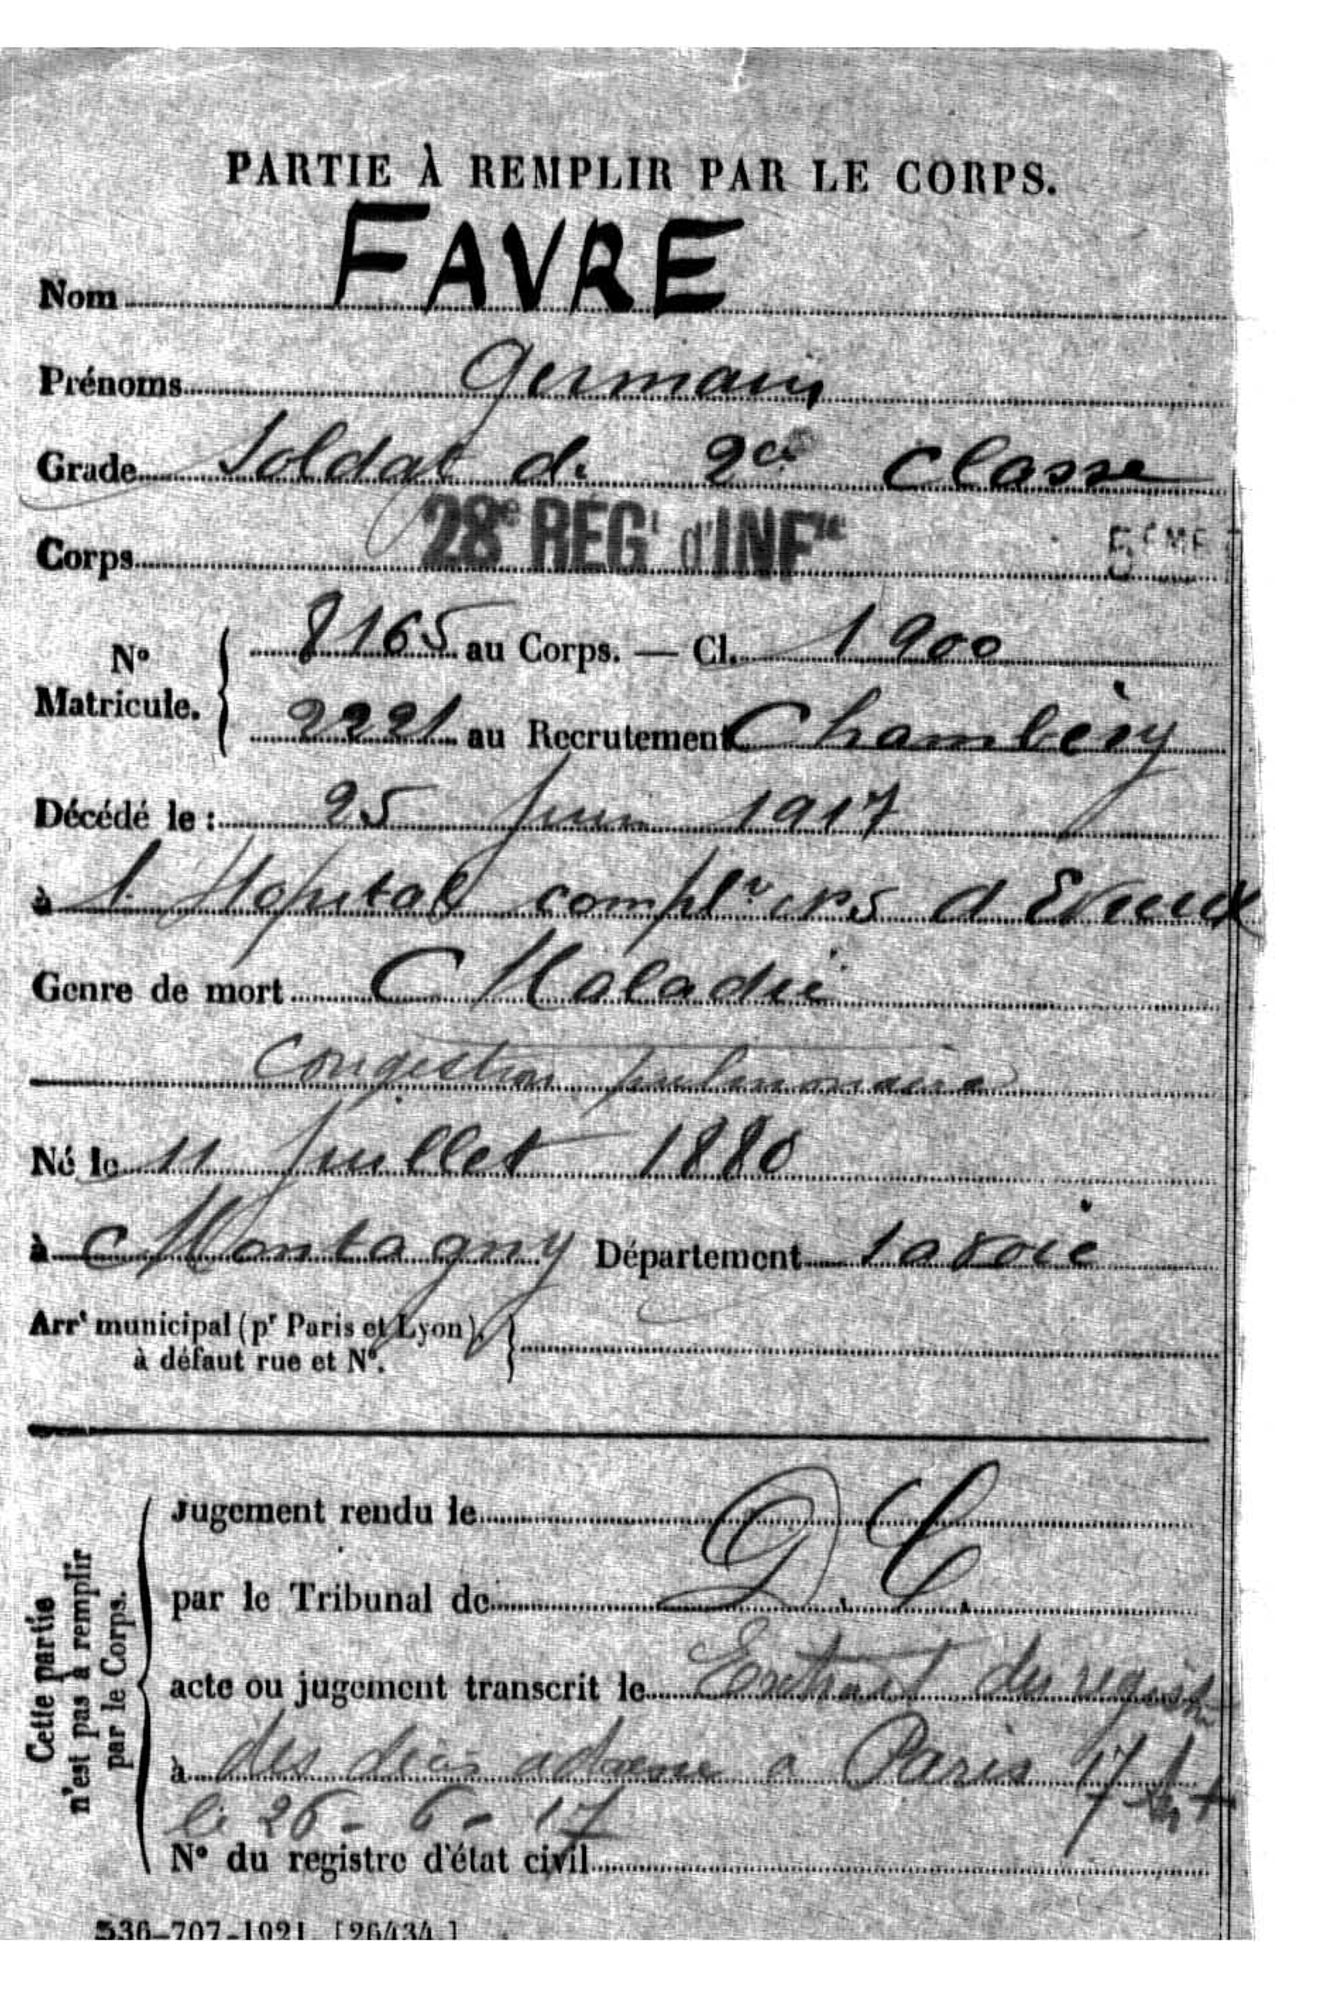 PARTIE À REMPLIR PAR LE CORPS.
Nom FAVRE
Prénoms Germain
Grade Soldat de 2e Classe
Corps 28e RÉGt d'INFie 5ÈME
8165 au Corps. — Cl. 1900
No Matricule.
2221 au Recrutement Chambéry
Décédé le : 25 juin 1917
à l'Hôpital complre d'Evreux
Genre de mort Maladie
Congestion pulmonaire
Né le 11 Juillet 1880
à Montagny Département Savoie
Arrt municipal (pr Paris et Lyon),
à défaut rue et No.
Cette partie
n'est pas à remplir
par le Corps.
Jugement rendu le D. C.
par le Tribunal de
acte ou jugement transcrit le Extrait du registre
à des décès adressé à Paris 17
le 26-6-17
No du registre d'état civil
536-707-1921. [26434.]